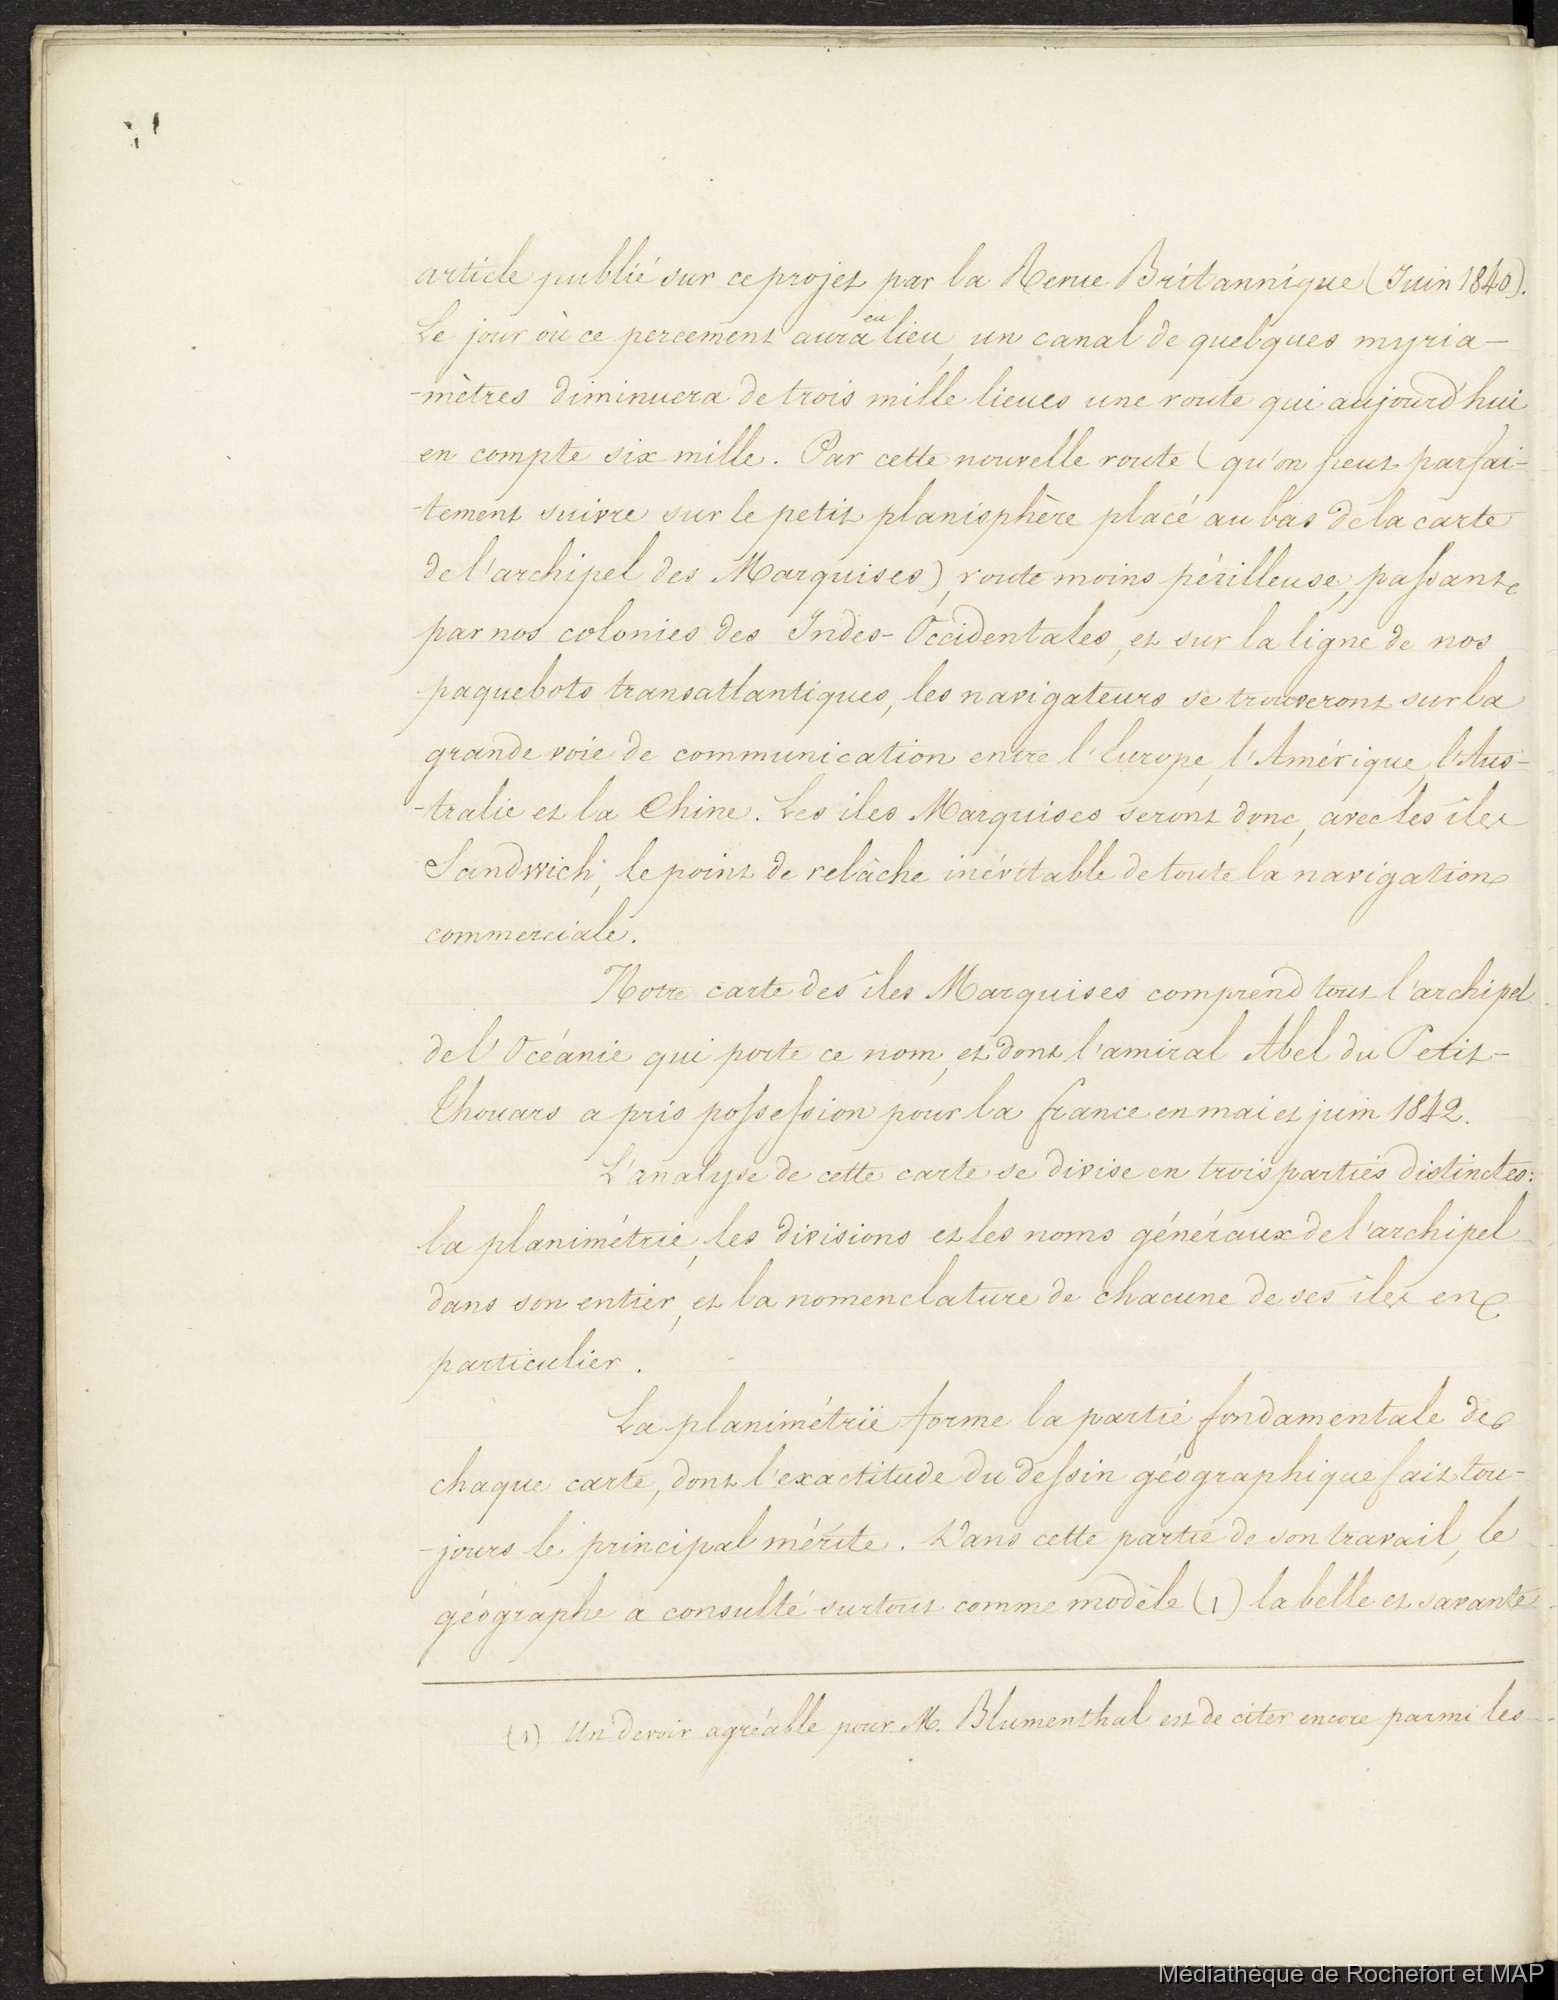 article publié sur ce projet par la Revue Britannique (Juin 1840).
Le jour où ce percement aura eu lieu, un canal de quelques myria-
-mètres diminuera de trois mille lieues une route qui aujourd'hui
en compte six mille. Par cette nouvelle route (qu'on peut parfai-
-tement suivre sur le petit planisphère placé au bas de la carte
de l'archipel des Marquises), route moins périlleuse, passant
par nos colonies des Indes-Occidentales, et sur la ligne de nos
paquebots transatlantiques, les navigateurs se trouveront sur la
grande voie de communication entre l'Europe, l'Amérique, l'Aus-
-tralie et la Chine. Les îles Marquises seront donc, avec les îles
Sandwich, le point de relâche inévitable de toute la navigation
commerciale.
Notre carte des îles Marquises comprend tout l'archipel
de l'Océanie qui porte ce nom, et dont l'amiral Abel du Petit-
Thouars a pris possession pour la france en mai et juin 1842.
L'analyse de cette carte se divise en trois parties distinctes:
la planimétrie, les divisions et les noms généraux de l'archipel
dans son entier, et la nomenclature de chacune de ses îles en
particulier.
La planimétrie forme la partie fondamentale de
chaque carte, dont l'exactitude du dessin géographique fait tou-
-jours le principal mérite. Dans cette partie de son travail, le
géographe a consulté surtout comme modèle (1) la belle et savante
(1) Un devoir agréable pour M. Blumenthal est de citer encore parmi les
Médiathèque de Rochefort et MAP